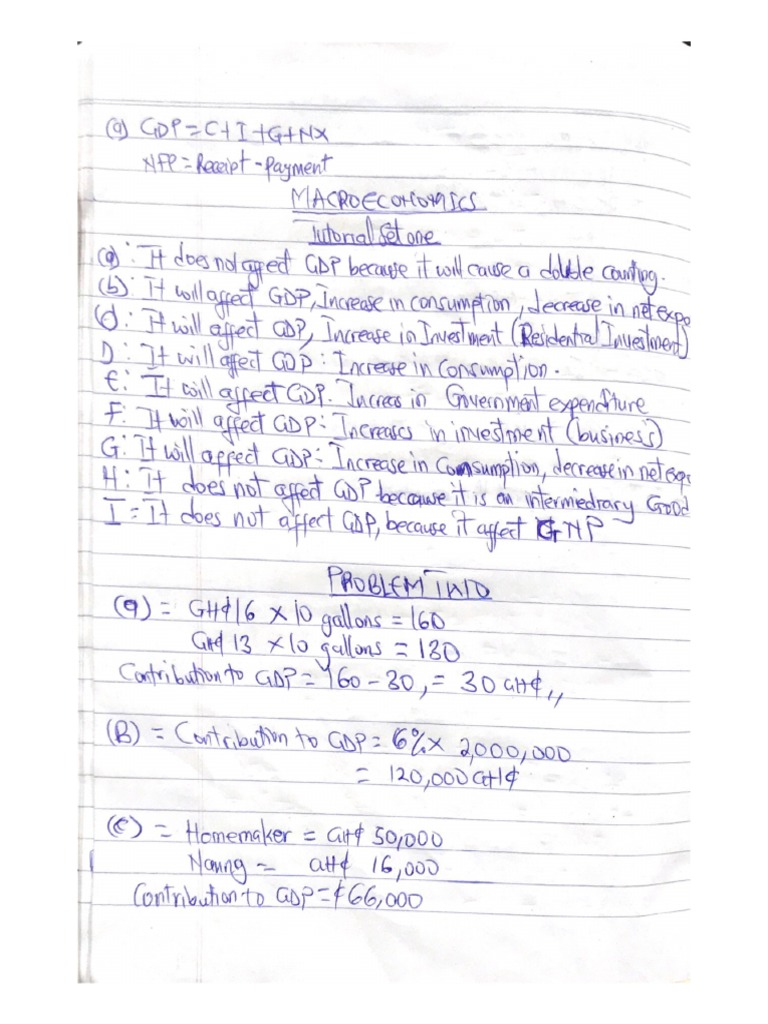 (a) GDP = C + I + G + NX
NFP = Receipt - Payment
MACROECONOMICS
Tutorial Set one
(a): It does not affect GDP because it will cause a double counting.
(b): It will affect GDP, Increase in consumption, decrease in net expo
(d): It will affect GDP, Increase in Investment (Residential Investment)
D: It will affect GDP: Increase in Consumption.
E: It will affect GDP. Increas in Government expenditure
F: It will affect GDP: Increases in investment (business)
G: It will affect GDP: Increase in Consumption, decrease in net exp
H: It does not affect GDP because it is an intermedrary Good
I = It does not affect GDP, because it affect GNP
PROBLEM TWO
(a) = GH¢16 × 10 gallons = 160
GH¢ 13 × 10 gallons = 130
Contribution to GDP = 160 - 30, = 30 GH¢,,
(B) = Contribution to GDP = 6% × 2,000,000
= 120,000 GH¢
(c) = Homemaker = GH¢ 50,000
= GH¢ 16,000
Contribution to GDP = ¢66,000